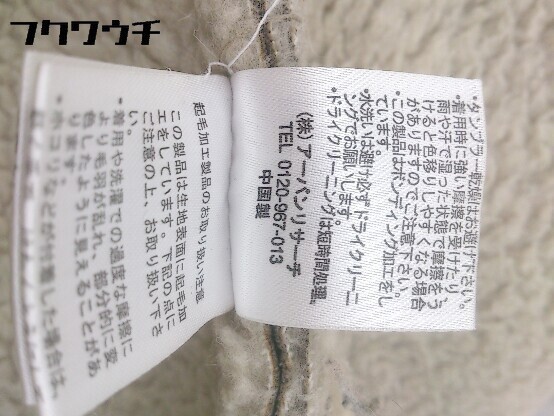 フクワウチ
・タンブラー乾燥はお避け下さい。
・着用時に強い摩擦を受けたり、
雨や汗で湿った状態で摩擦をう
けると色移りしやすくなる場合
がありますのでご注意下さい。
・この製品はボンディング加工をし
ています。
・水洗いは避け必ずドライクリーニ
ングでお願いします。
・ドライクリーニングは短時間処理。
(株)アーバンリサーチ
TEL 0120-967-013
中国製
起毛加工製品のお取り扱い注意
この製品は生地表面に起毛加
工をしています。下記の点に
ご注意の上、お取り扱い下さ
・着用や洗濯での過度な摩擦に
より毛羽が乱れ、部分的に変
色したように見えることがあ
ります。
・ホコリなどが付着した場合は